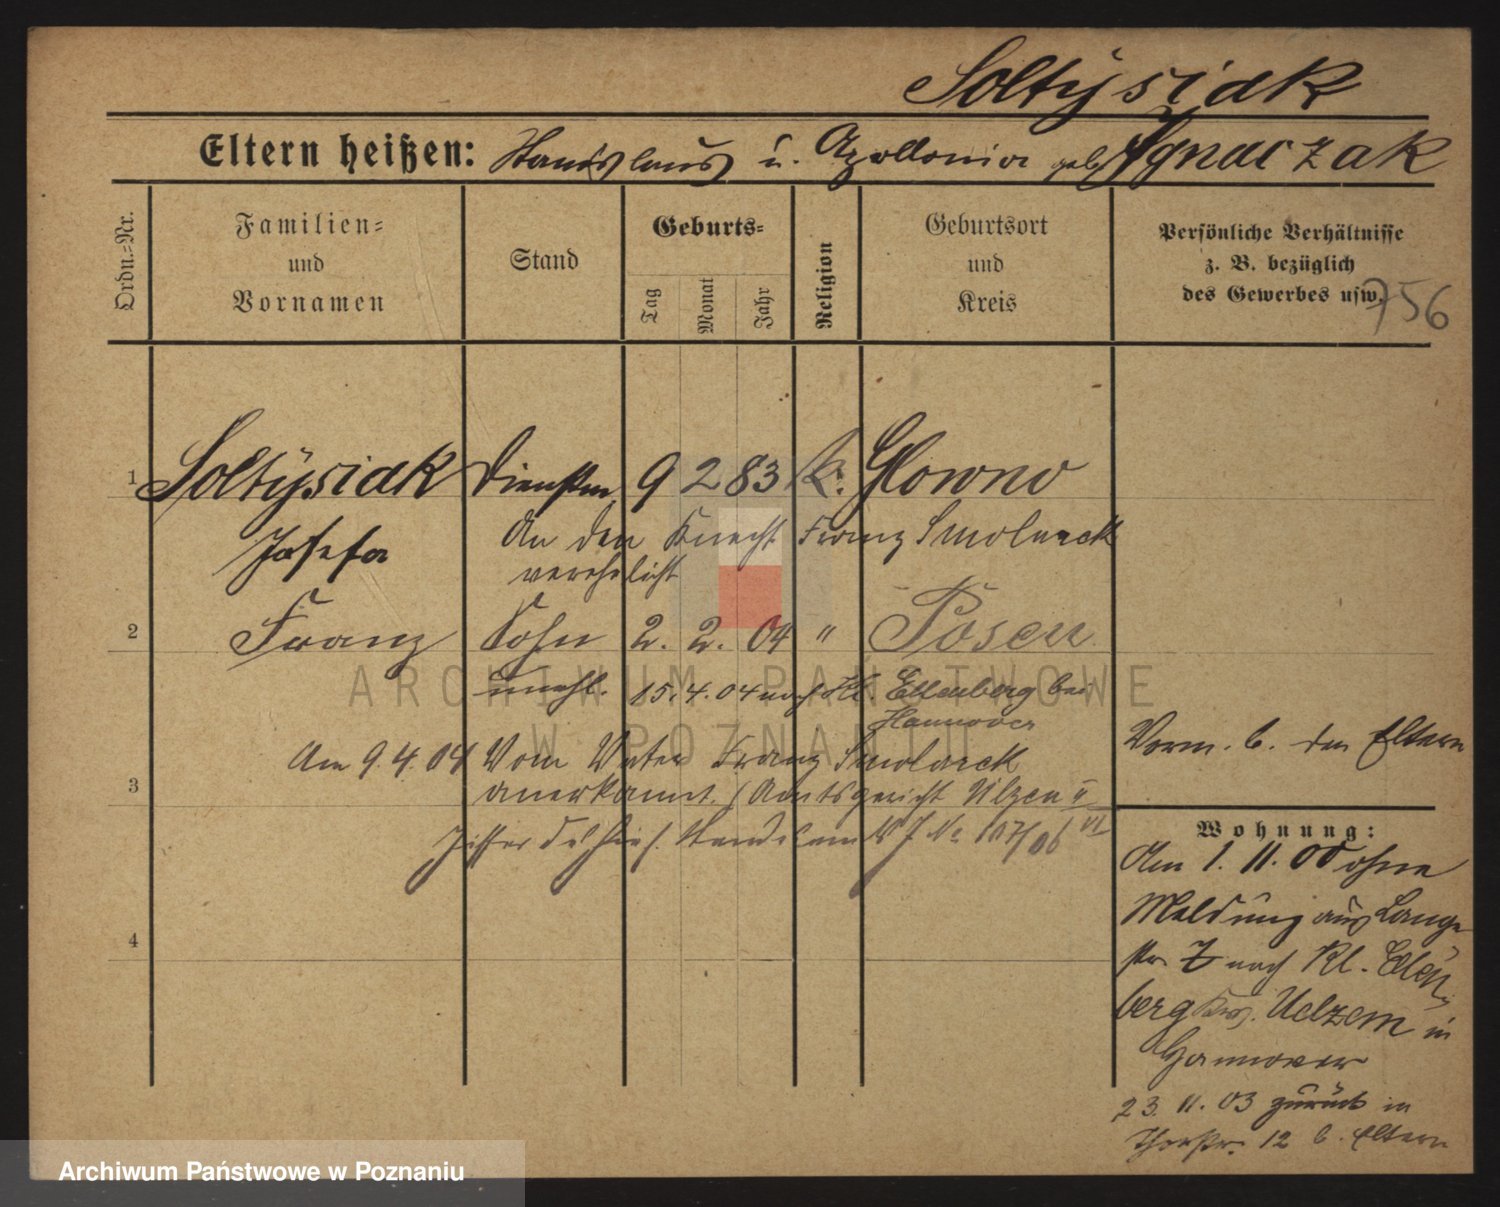 Soltysiak
Eltern heißen: Stanislaus u. Apollonia geb. Ignaczak
Ordn.=Nr.
Familien=
und
Vornamen
Stand
Geburts=
Tag
Monat
Jahr
Religion
Geburtsort
und
Kreis
Persönliche Verhältnisse
z. B. bezüglich
des Gewerbes usw.
756
1 Soltysiak Dienstm. 9 2 83 k. Glowno
Josefa An den Knecht Franz Smolarek
verehelicht
2 Franz Sohn 2. 2. 04 " Posen
15.4.04 nach Kl. Ellenberg bei
Hannover
Am 9.4.04 Vom Vater Franz Smolarek
3 anerkannt. (Amtsgericht Ülzen II
Standesamts J No 107/06 VI
4
Vorm. b. den Eltern
Wohnung:
Am 1. 11. 00 ohne
Meldung aus Lange
str. 7 nach Kl. Ellen
berg Krs. Uelzem in
Hannover
23. 11. 03 zurück in
Thorstr. 12 b. Eltern
ARCHIWUM PAŃSTWOWE
W POZNANIU
Archiwum Państwowe w Poznaniu